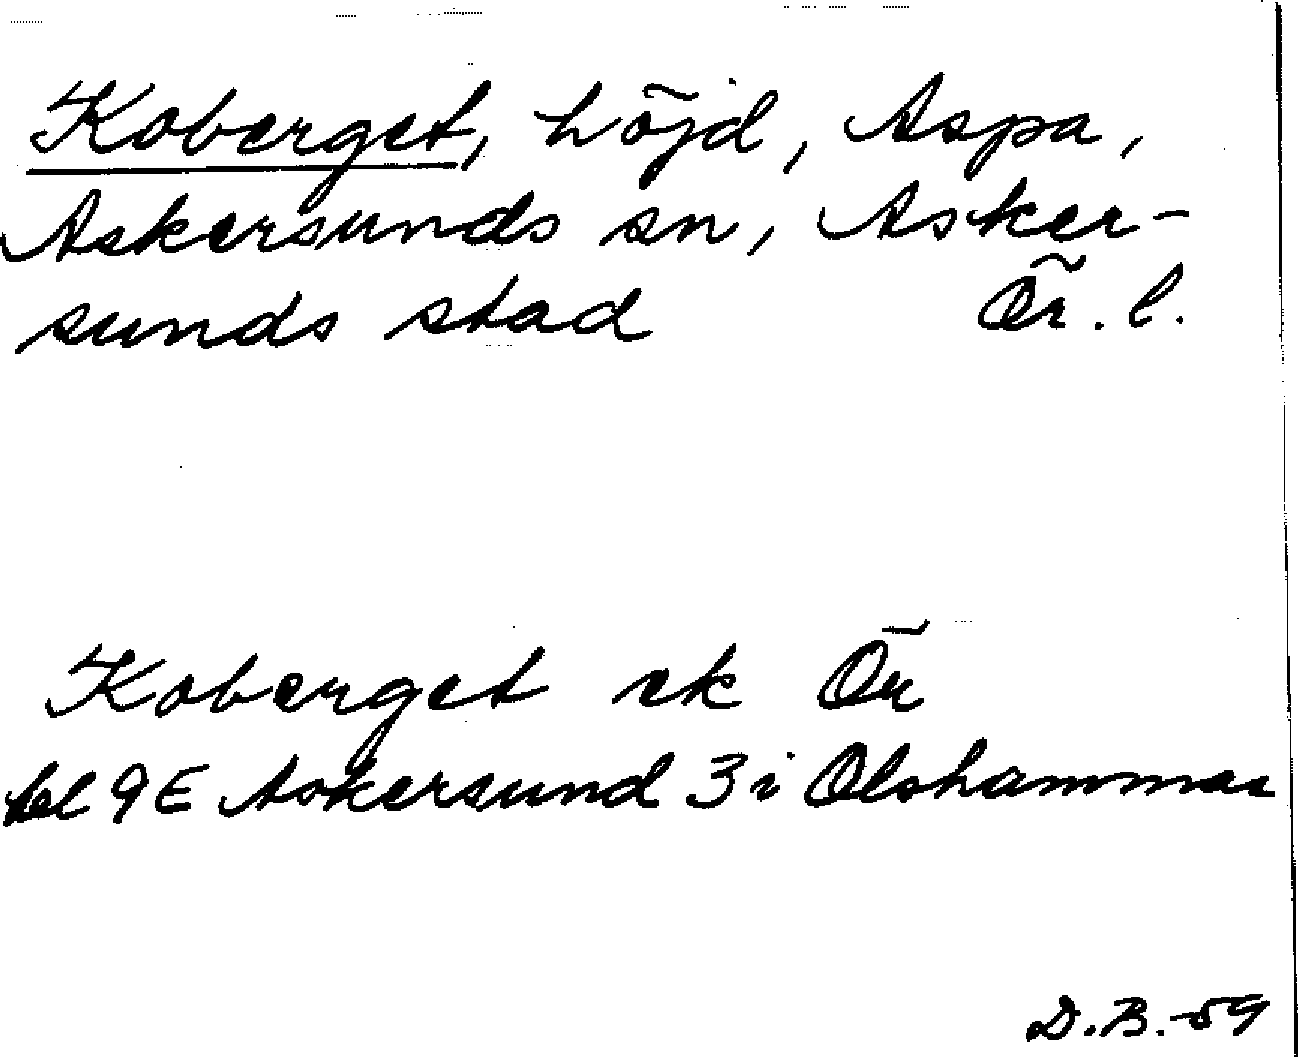 Koberget, höjd, Aspa,
Askersunds sn, Asker-
sunds stad Ör. l.
Koberget ek Ör
bl 9E Askersund 3 i Olshammar
D.B.-59